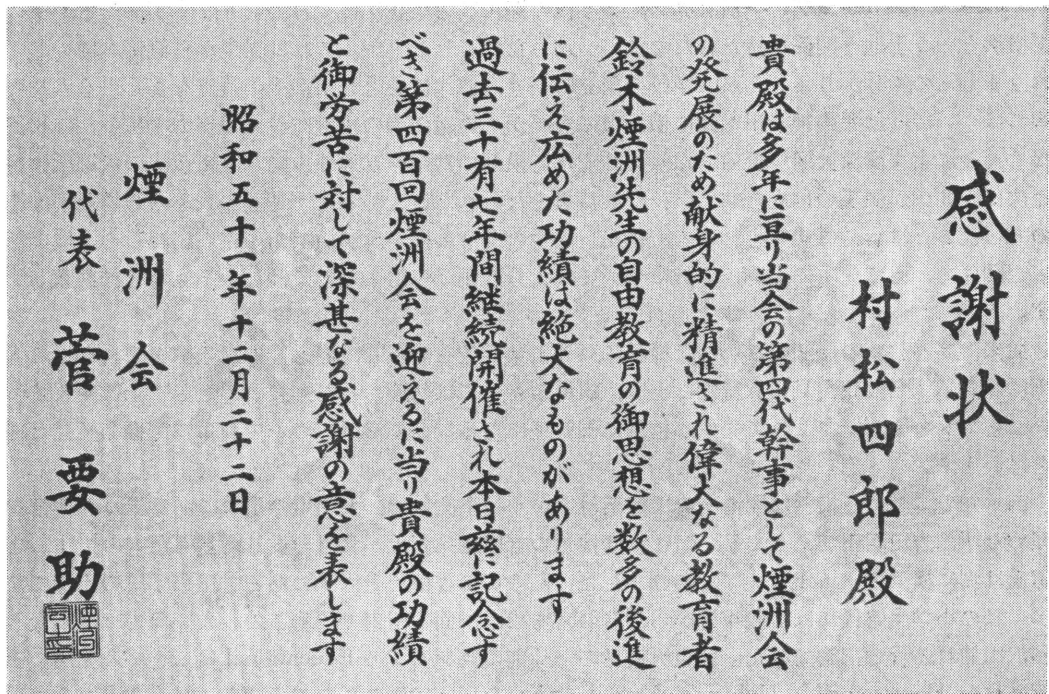 感謝状
村松四郎殿
貴殿は多年に亘り当会の第四代幹事として煙洲会
の発展のため献身的に精進され偉大なる教育者
鈴木煙洲先生の自由教育の御思想を数多の後進
に伝え広めた功績は絶大なものがあります
過去三十有七年間継続開催され本日茲に記念す
べき第四百回煙洲会を迎えるに当り貴殿の功績
と御労苦に対して深甚なる感謝の意を表します
昭和五十一年十二月二十二日
煙洲会
代表 菅要助